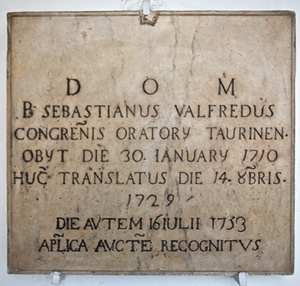 D O M
B. SEBASTIANUS VALFREDUS
CONGREÑIS ORATORY TAURINEN.
OBYT DIE 30. IANUARY 1710
HUC̃ TRANSLATUS DIE 14. 8BRIS.
1729
DIE AVTEM 16 IULII 1753
APL̃ICA AUCTẼ RECOGNITVS